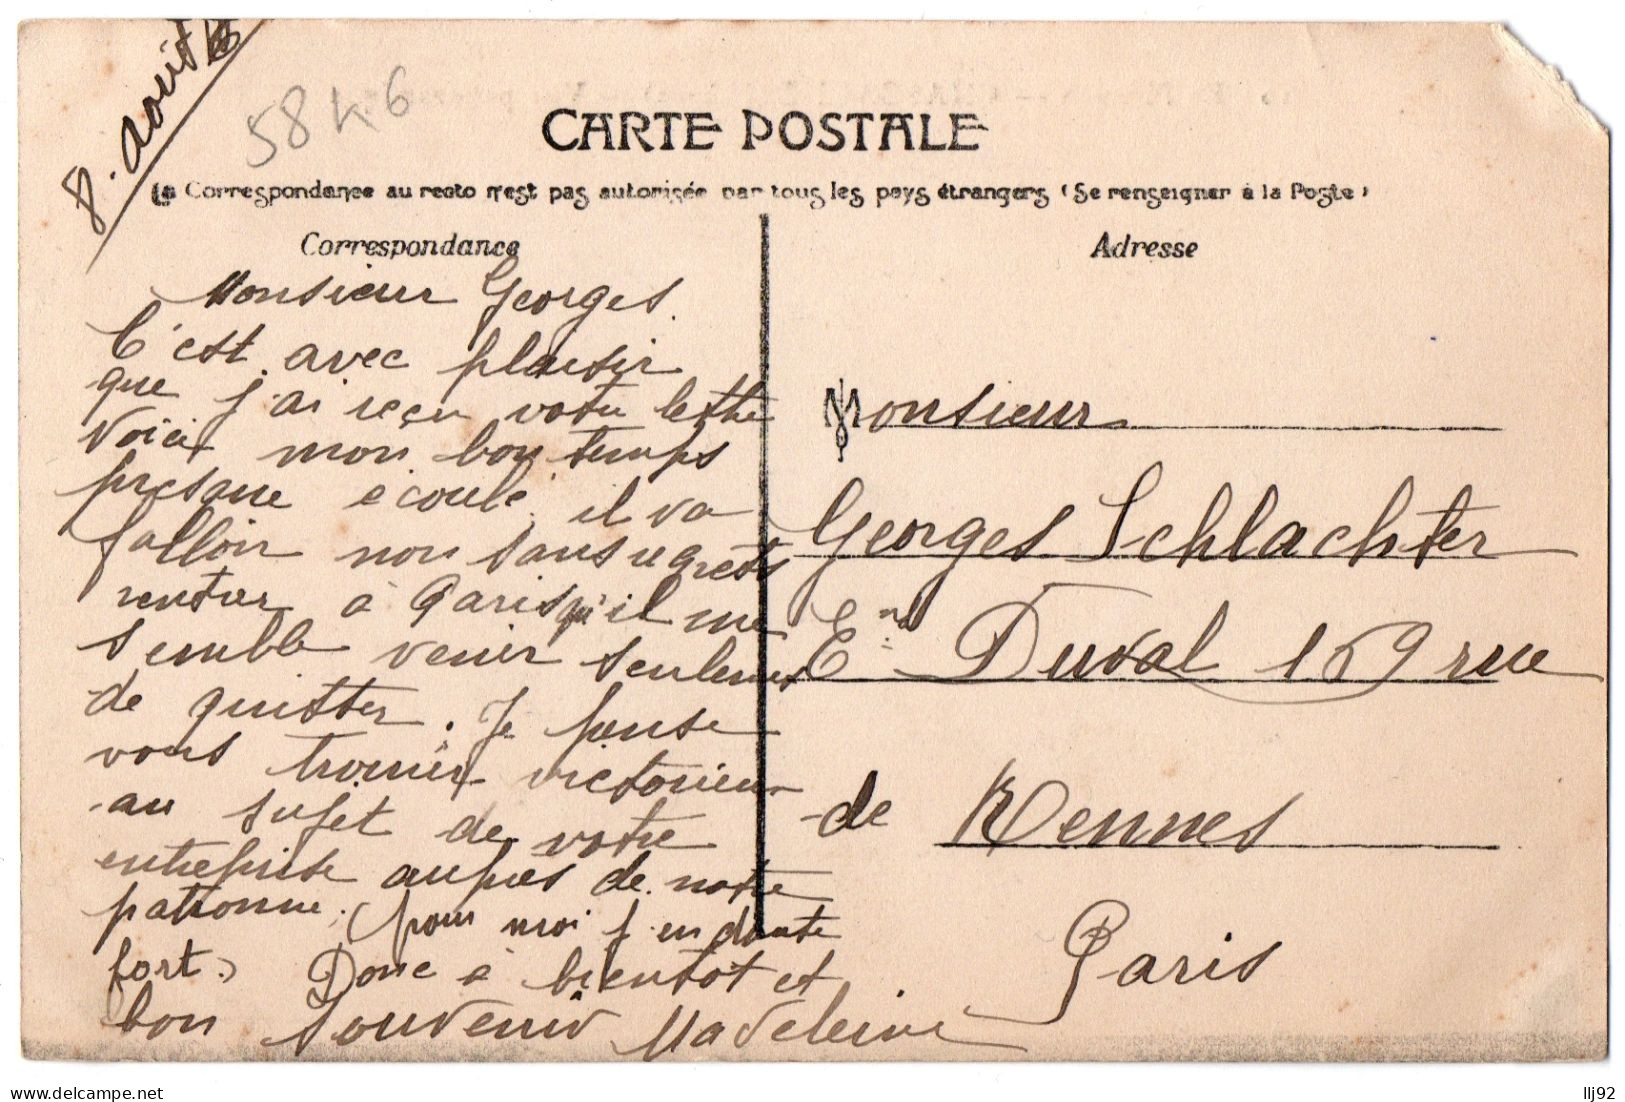 8. Août
58 K 6
CARTE POSTALE
La Correspondance au recto n'est pas autorisée par tous les pays étrangers (Se renseigner à la Poste)
Correspondance
Adresse
Monsieur Georges.
C'est avec plaisir
que j'ai reçu votre lettre
Voici mon bon temps
presque ecoulé, il va
falloir non sans regrets
rentrer à Paris qu'il me
semble venir seulement
de quitter. Je pense
vous trouver victorieux
au sujet de votre
entreprise auprès de notre
patronne. (pour moi j'en doute
fort.) Donc à bientot et
bon souvenir Madeleine
Monsieur
Georges Schlachter
En Duval 169 rue
de Rennes
Paris
llj92